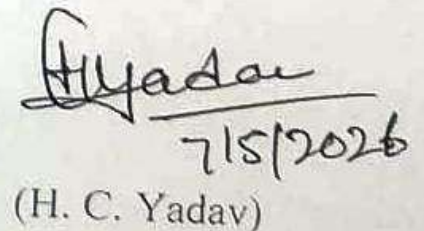 HCYadav
7/5/2026
(H. C. Yadav)